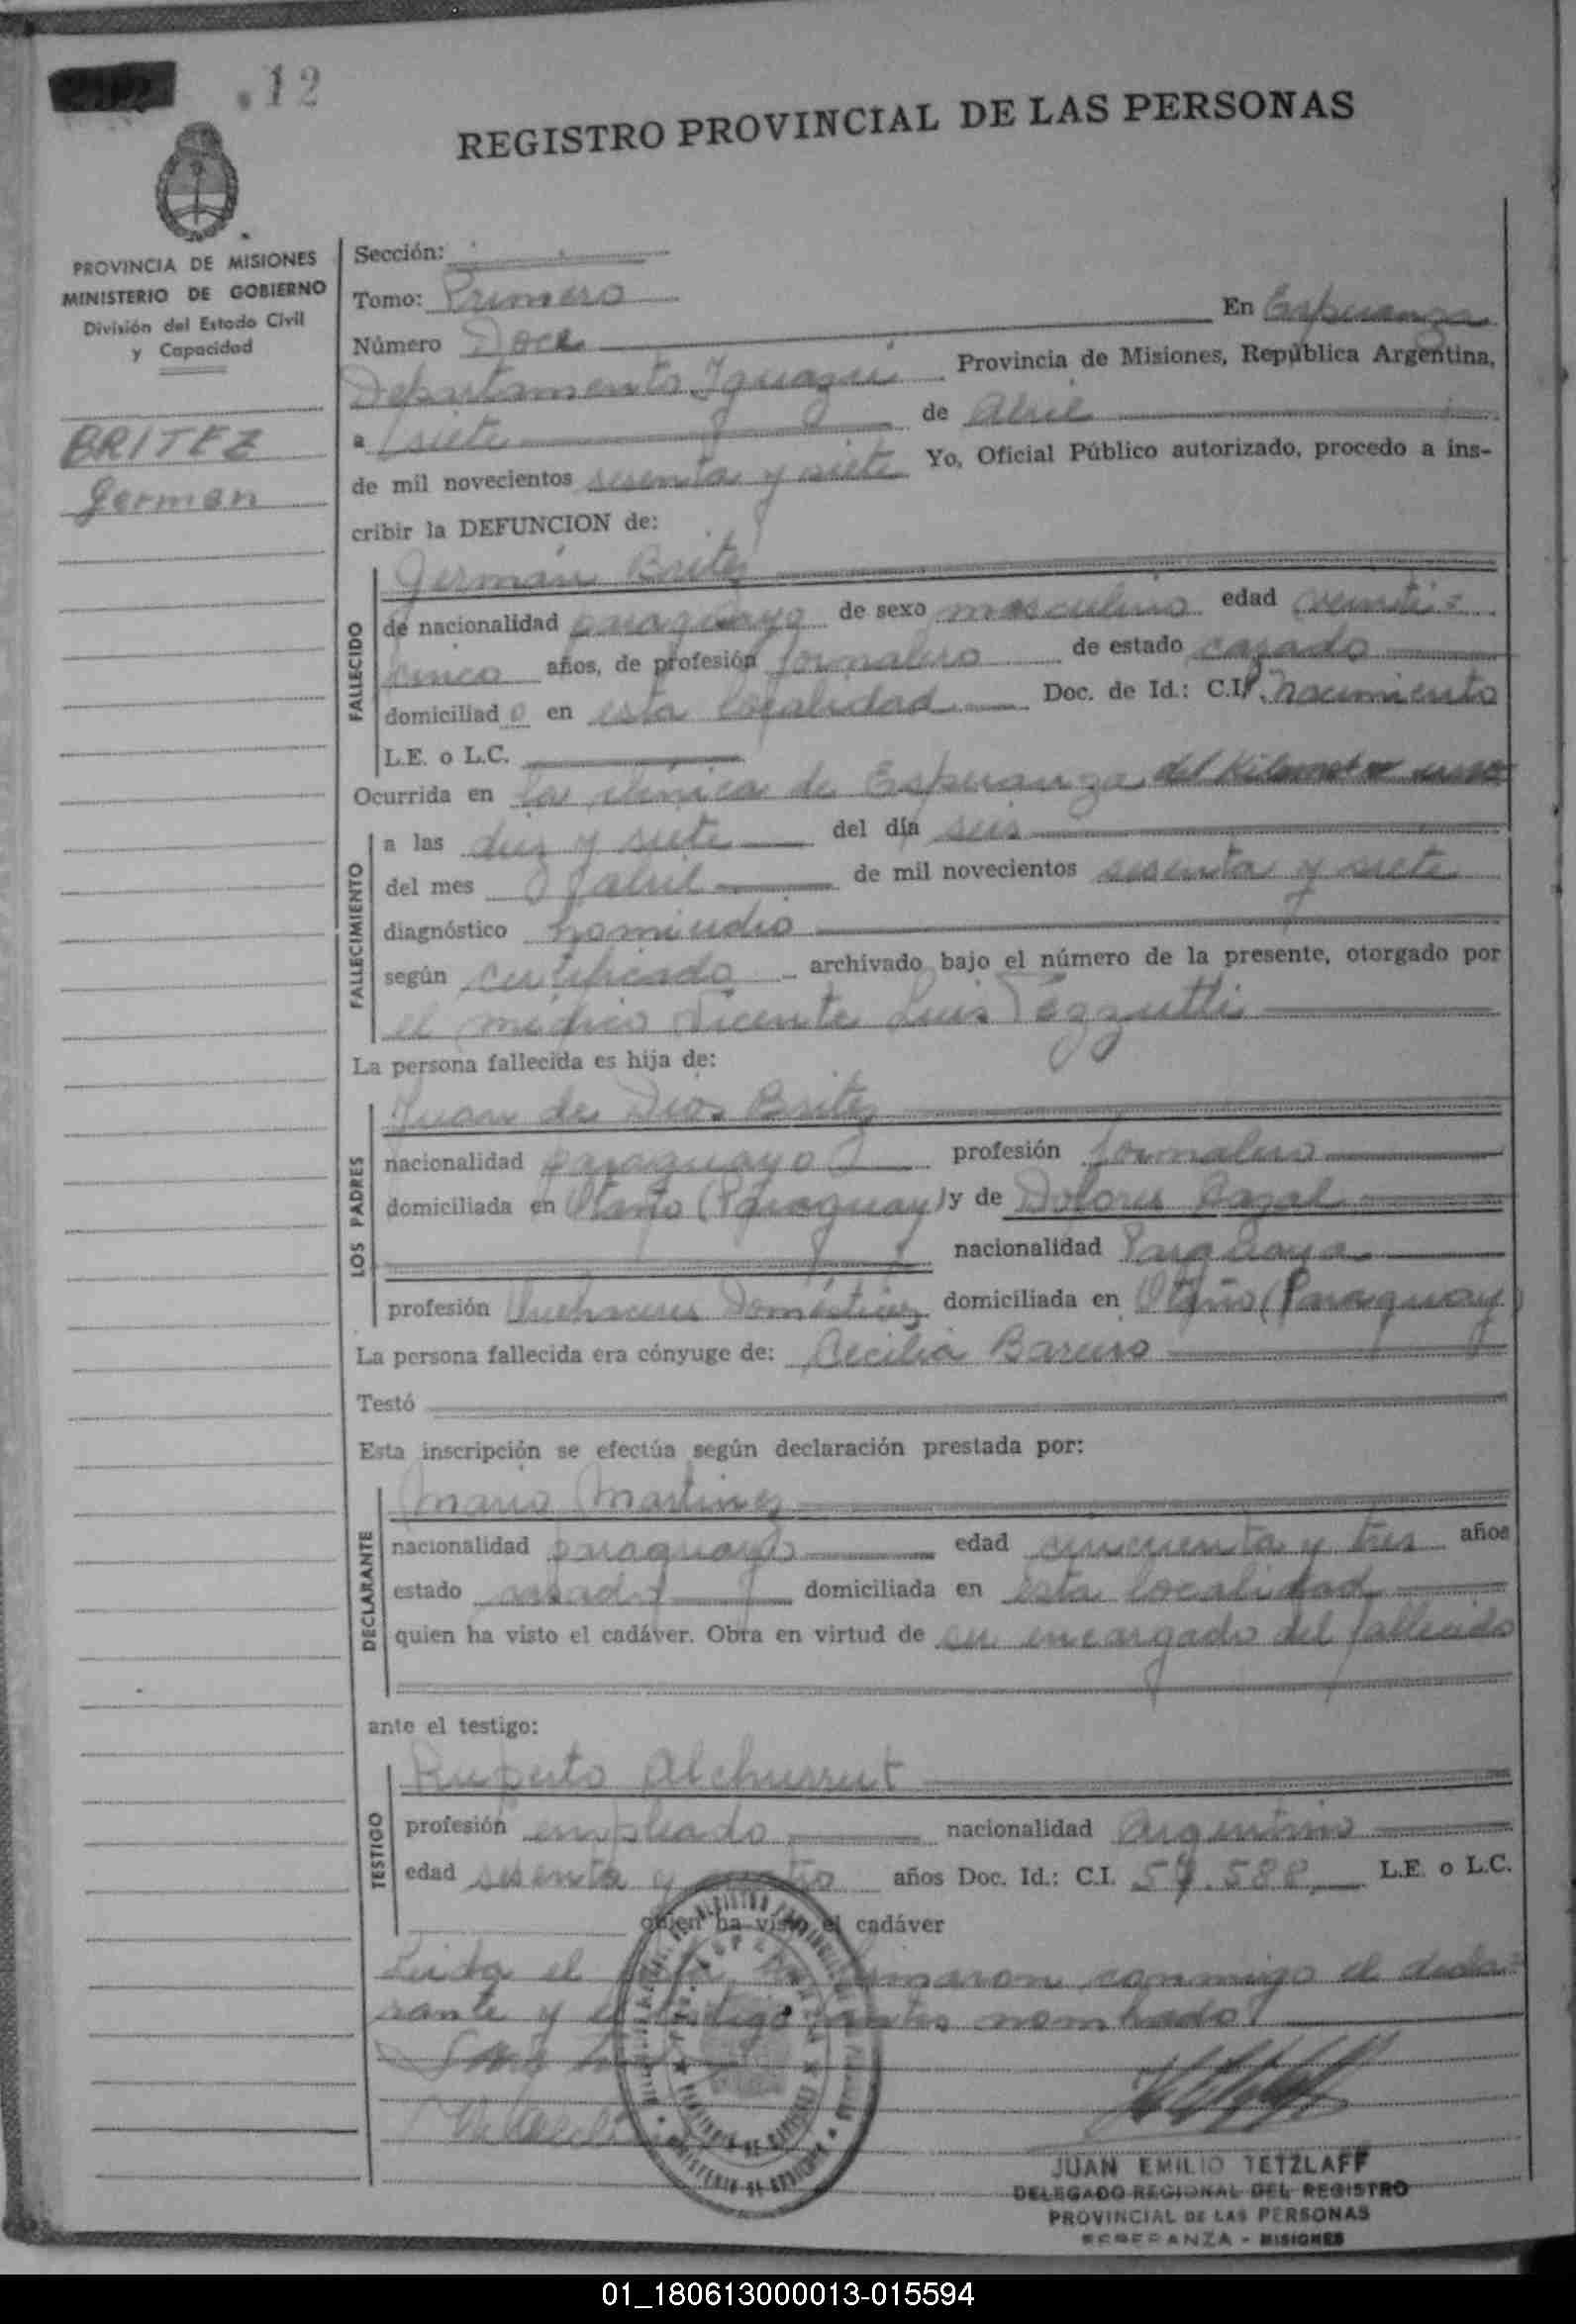 .12
REGISTRO PROVINCIAL DE LAS PERSONAS
PROVINCIA DE MISIONES
MINISTERIO DE GOBIERNO
División del Estado Civil
y Capacidad
BRITEZ
German
Sección:
Tomo: Primero
Número Doce En Esperanza
Departamento Iguazú Provincia de Misiones, República Argentina,
a siete de Abril
de mil novecientos sesenta y siete Yo, Oficial Público autorizado, procedo a ins-
cribir la DEFUNCION de:
FALLECIDO
Germán Britez
de nacionalidad paraguayo de sexo masculino edad veinti=
cinco años, de profesión jornalero de estado casado
domiciliado en esta localidad Doc. de Id.: C.I. P. nacimiento
L.E. o L.C.
Ocurrida en la clínica de Esperanza del Kilometro
FALLECIMIENTO
a las diez y siete del día seis
del mes abril de mil novecientos sesenta y siete
diagnóstico homicidio
según certificado archivado bajo el número de la presente, otorgado por
el médico Vicente Luis
La persona fallecida es hija de:
LOS PADRES
Juan de Dios Britez
nacionalidad paraguayo profesión jornalero
domiciliada en Otaño (Paraguay) y de Dolores
nacionalidad Paraguaya
profesión Quehaceres Domésticos domiciliada en Otaño (Paraguay)
La persona fallecida era cónyuge de: Cecilia
Testó
Esta inscripción se efectúa según declaración prestada por:
DECLARANTE
Mario Martinez
nacionalidad paraguayo edad cincuenta y tres años
estado casado domiciliada en esta localidad
quien ha visto el cadáver. Obra en virtud de ser encargado del fallecido
ante el testigo:
TESTIGO
Ruperto Alchurrut
profesión empleado nacionalidad Argentino
edad sesenta y cuatro años Doc. Id.: C.I. 57.588 L.E. o L.C.
quien ha visto el cadáver
Leida el acta, la firmaron conmigo el decla=
rante y el testigo antes nombrado
JUAN EMILIO TETZLAFF
DELEGADO REGIONAL DEL REGISTRO
PROVINCIAL DE LAS PERSONAS
ESPERANZA - MISIONES
01_180613000013-015594